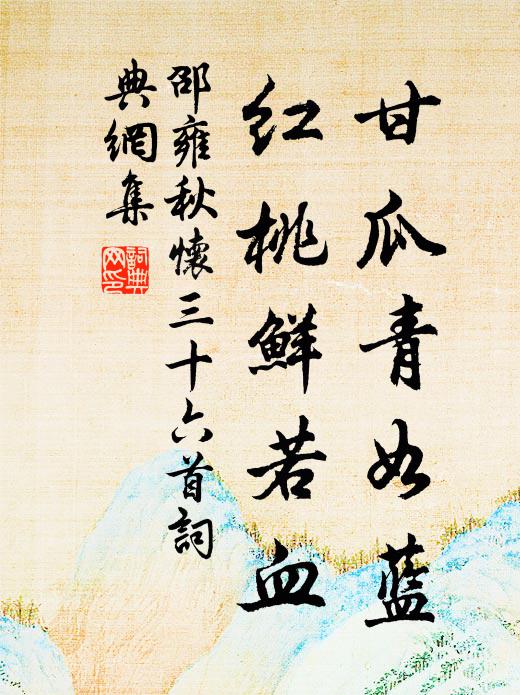 甘瓜青如藍
紅桃鮮若血
邵雍秋懷三十六首詞
典網集
詞典
网印